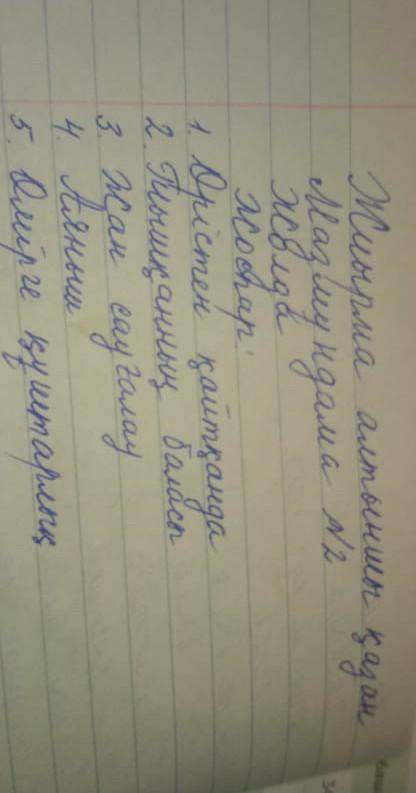 Жиырма алтыншы қазан
Мазмұндама №2
Жоспар:
1. Өрістен қайтқанда
2. Тышқанның баласы
3. Жан сауғалау
4. Аяныш
5. Өмірге құштарлық